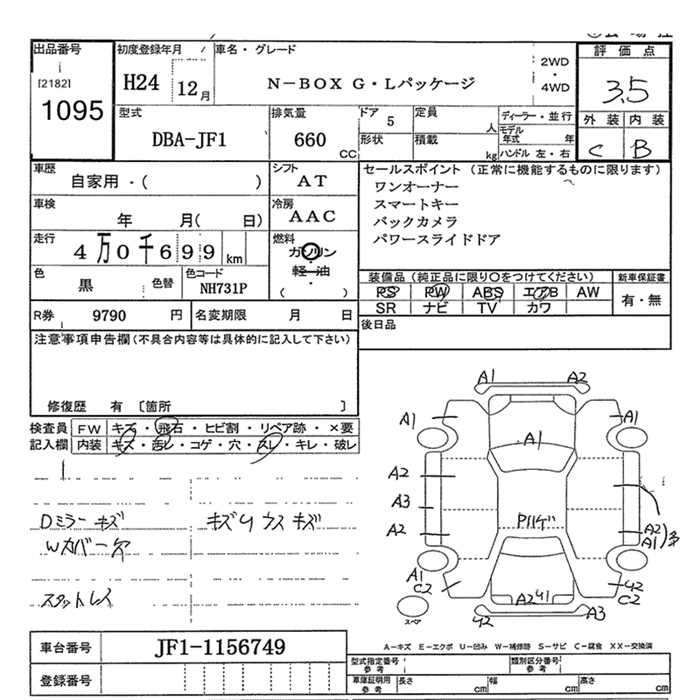 出品番号
[2182]
1095
初度登録年月
H24 12月
車名・グレード
N-BOX G・Lパッケージ
2WD
・
4WD
評価点
3.5
外装 内装
C B
型式
DBA-JF1
排気量
660 CC
ドア 5
形状
定員 人
積載 kg
ディーラー・並行
モデル年式 年
ハンドル 左・右
車歴
自家用・( )
シフト
AT
車検
年 月( 日)
冷房
AAC
走行
4万0千699 km
燃料
ガソリン
軽・油
( ・ )
色
黒
色替
色コード
NH731P
セールスポイント (正常に機能するものに限ります)
ワンオーナー
スマートキー
バックカメラ
パワースライドドア
装備品 (純正品に限り○をつけてください)
PS PW ABS エアB AW
SR ナビ TV カワ
新車保証書
有・無
R券 9790 円
名変期限 月 日
後日品
注意事項申告欄 (不具合内容等は具体的に記入して下さい)
修復歴 有 [箇所 ]
検査員記入欄
FW キズ・飛石・ヒビ割・リペア跡・×要
内装 キズ・汚レ・コゲ・穴・スレ・キレ・破レ
Dミラーキズ
キズ
Wカバー欠
A1 A2
A1 A1
A1
A2
A3
A2
A2
A1
A1
C2
C2
A2
A3
スペア
車台番号 JF1-1156749
登録番号
A-キズ E-エクボ U-凹み W-補修跡 S-サビ C-腐食 XX-交換済
型式指定番号 参考
類別区分番号 参考
車庫証明用 参考
長さ cm
幅 cm
高さ cm